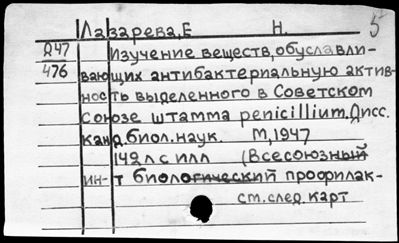 Лазарева, Е Н. 5
Д47 Изучение веществ, обуславли-
476 вающих антибактериальную актив-
ность выделенного в Советском
Союзе штамма penicillium. Дисс.
канд. биол. наук. М, 1947
142 л с илл (Всесоюзный
ин-т биологический профилак-
см. след. карт